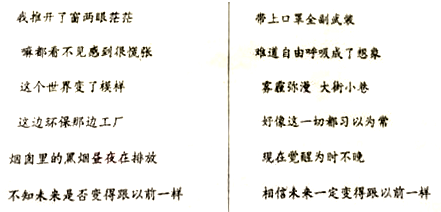 我推开了窗两眼茫茫
嘛都看不见感到很慌张
这个世界变了模样
这边环保那边工厂
烟囱里的黑烟昼夜在排放
不知未来是否变得跟以前一样
带上口罩全副武装
难道自由呼吸成了想象
雾霾弥漫 大街小巷
好像这一切都习以为常
现在觉醒为时不晚
相信未来一定变得跟以前一样